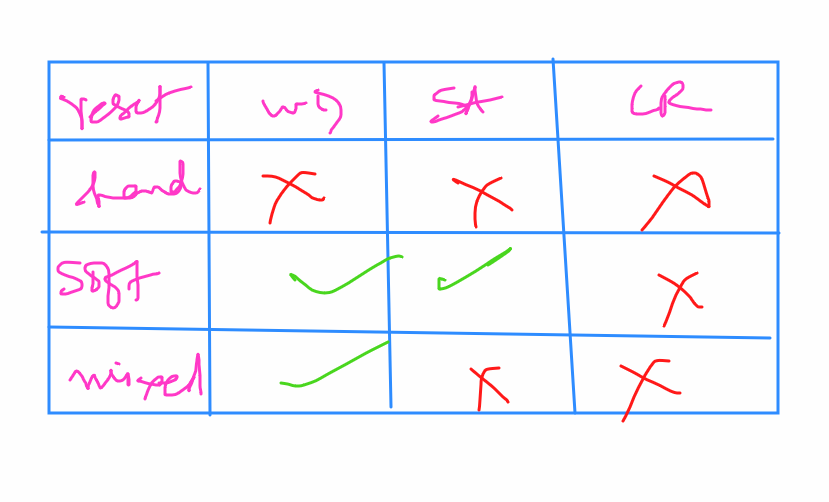 reset WD SA LR
hard ✗ ✗ ✗
soft ✓ ✓ ✗
mixed ✓ ✗ ✗